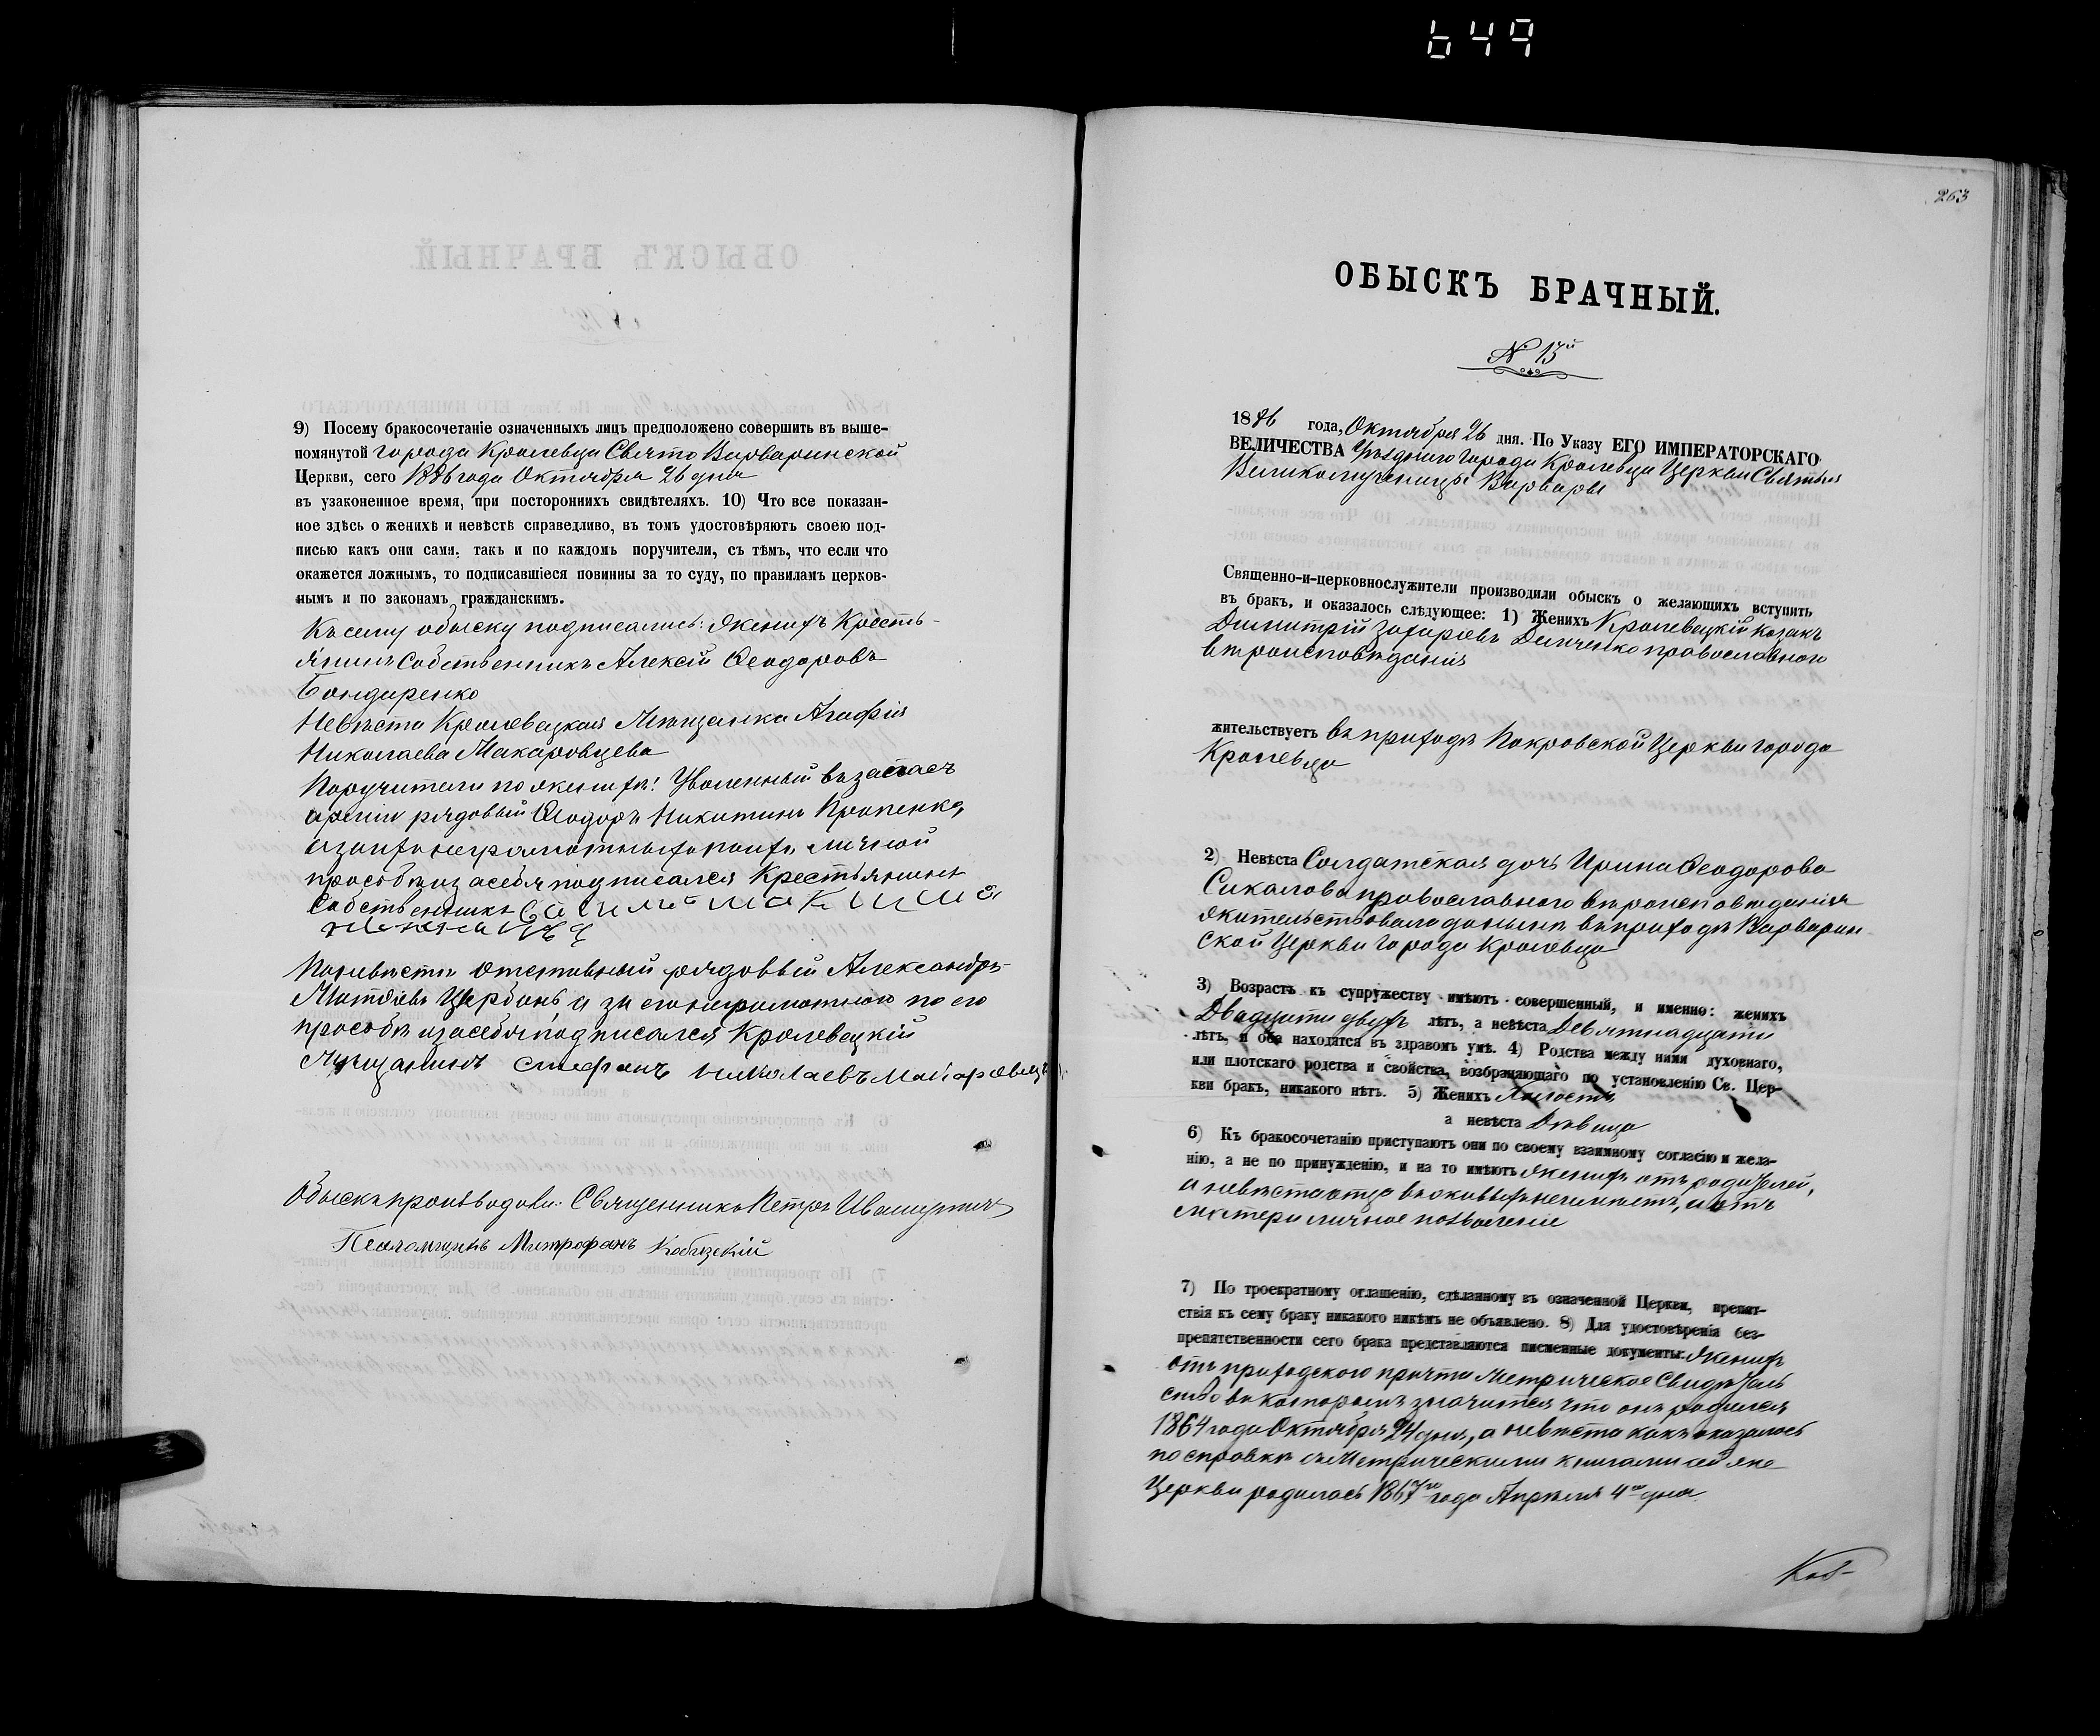 649
9) Посему бракосочетаніе означенныхъ лицъ предположено совершить въ выше-
помянутой города Кролевца Свято Варваринской
Церкви, сего 1886 года Октября 26 дня
въ узаконенное время, при постороннихъ свидѣтеляхъ. 10) Что все показан-
ное здѣсь о женихѣ и невѣстѣ справедливо, въ томъ удостовѣряютъ своею под-
писью какъ они сами, такъ и по каждомъ поручители, съ тѣмъ, что если что
окажется ложнымъ, то подписавшіеся повинны за то суду, по правиламъ церков-
нымъ и по законамъ гражданскимъ.
Къ сему обыску подписались: Женихъ Кресть-
янинъ Собственникъ Алексѣй Ѳеодоровъ
Бондаренко
Невѣста Кролевецкая Мѣщанка Агафія
Николаева Макаровцева
Поручители по женихѣ: Уволенный въ запасъ
арміи рядовый Ѳеодоръ Никитинъ Пропенко,
а за ихъ неграмотныхъ по ихъ личной
прозьбѣ и за себя подписался Крестьянинъ
Собственникъ
По невѣстѣ отставный рядовый Александръ
Матвіевъ Щербань а за его неграмотного по его
прозьбѣ и за себя подписался Кролевецкій
Мѣщанинъ стефанъ николаевъ макаровецъ
Обыскъ производили: Священникъ Петръ Ивашутичъ
Псаломщикъ Митрофанъ Кобызскій
263
ОБЫСКЪ БРАЧНЫЙ.
№ 13й
1886 года, Октября 26 дня. По Указу ЕГО ИМПЕРАТОРСКАГО
ВЕЛИЧЕСТВА Уѣздного города Кролевца Церкви Святыя
Великомученицы Варвары
Священно-и-церковнослужители производили обыскъ о желающихъ вступить
въ бракъ, и оказалось слѣдующее: 1) Женихъ Кролевецкій козакъ
Димитрій Захаріевъ Демченко православного
вѣроисповѣданія
жительствуетъ въ приходѣ Покровской Церкви города
Кролевца
2) Невѣста Солдатская дочь Ирина Ѳеодорова
Сикалова православного вѣроисповѣданія
жительствовала донынѣ въ приходѣ Варварин
ской Церкви города Кролевца
3) Возрастъ къ супружеству имѣютъ совершенный, и именно: женихъ
Двадцати двухъ лѣтъ, а невѣста Девятнадцати
лѣтъ, и оба находятся въ здравомъ умѣ. 4) Родства между ними духовнаго,
или плотскаго родства и свойства, возбраняющаго по установленію Св. Цер-
кви бракъ, никакого нѣтъ. 5) Женихъ Холостъ
а невѣста Дѣвица
6) Къ бракосочетанію приступаютъ они по своему взаимному согласію и жела-
нію, а не по принужденію, и на то имѣютъ Женихъ отъ родителей,
а невѣста отца въ живыхъ неимѣетъ, а отъ
матери личное позволеніе
7) По троекратному оглашенію, сдѣланному въ означенной Церкви, препят-
ствія къ сему браку никакого никѣмъ не объявлено. 8) Для удостовѣренія без-
препятственности сего брака представляются писменные документы: Женихъ
отъ приходского причта Метрическое Свидѣтель
ство въ которомъ значится что онъ родился
1864 года Октября 24 дня, а невѣста какъ оказалось
по справкѣ съ Метрическими книгами сей же
Церкви родилась 1867го года Апрѣля 4го дня
Коб-